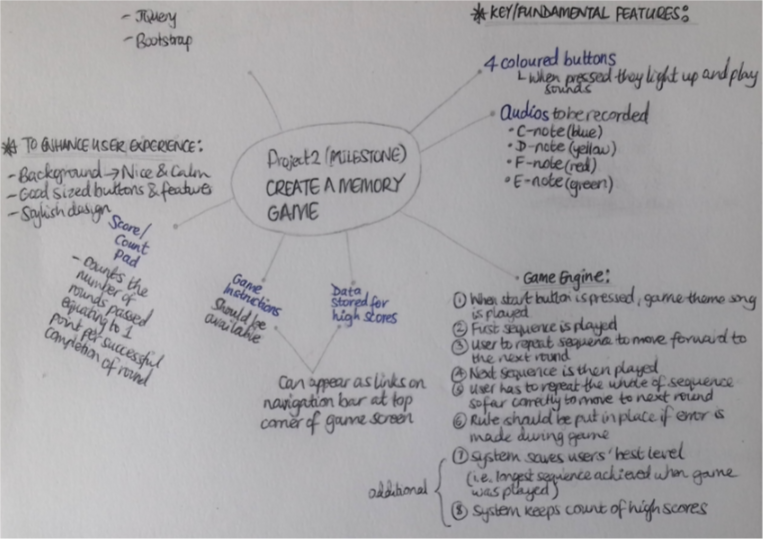 - JQuery
- Bootstrap
* KEY/FUNDAMENTAL FEATURES:
4 coloured buttons
└ When pressed they light up and play
sounds
Audios to be recorded
• C-note (blue)
• D-note (yellow)
• F-note (red)
• E-note (green)
Project 2 (MILESTONE)
CREATE A MEMORY
GAME
* TO ENHANCE USER EXPERIENCE:
- Background → Nice & Calm
- Good sized buttons & features
- Stylish design
Score/
Count
pad
- Counts the
number of
rounds passed
equating to 1
point per successful
completion of round
Game
Instructions
Should be
available
Data
stored for
high scores
Can appear as links on
navigation bar at top
corner of game screen
• Game Engine:
① When start button is pressed, game theme song
is played
② First sequence is played
③ User to repeat sequence to move forward to
the next round
④ Next sequence is then played
⑤ User has to repeat the whole of sequence
so far correctly to move to next round
⑥ Rule should be put in place if error is
made during game
additional
⑦ System saves users' best level
(i.e. longest sequence achieved when game
was played)
⑧ System keeps count of high scores